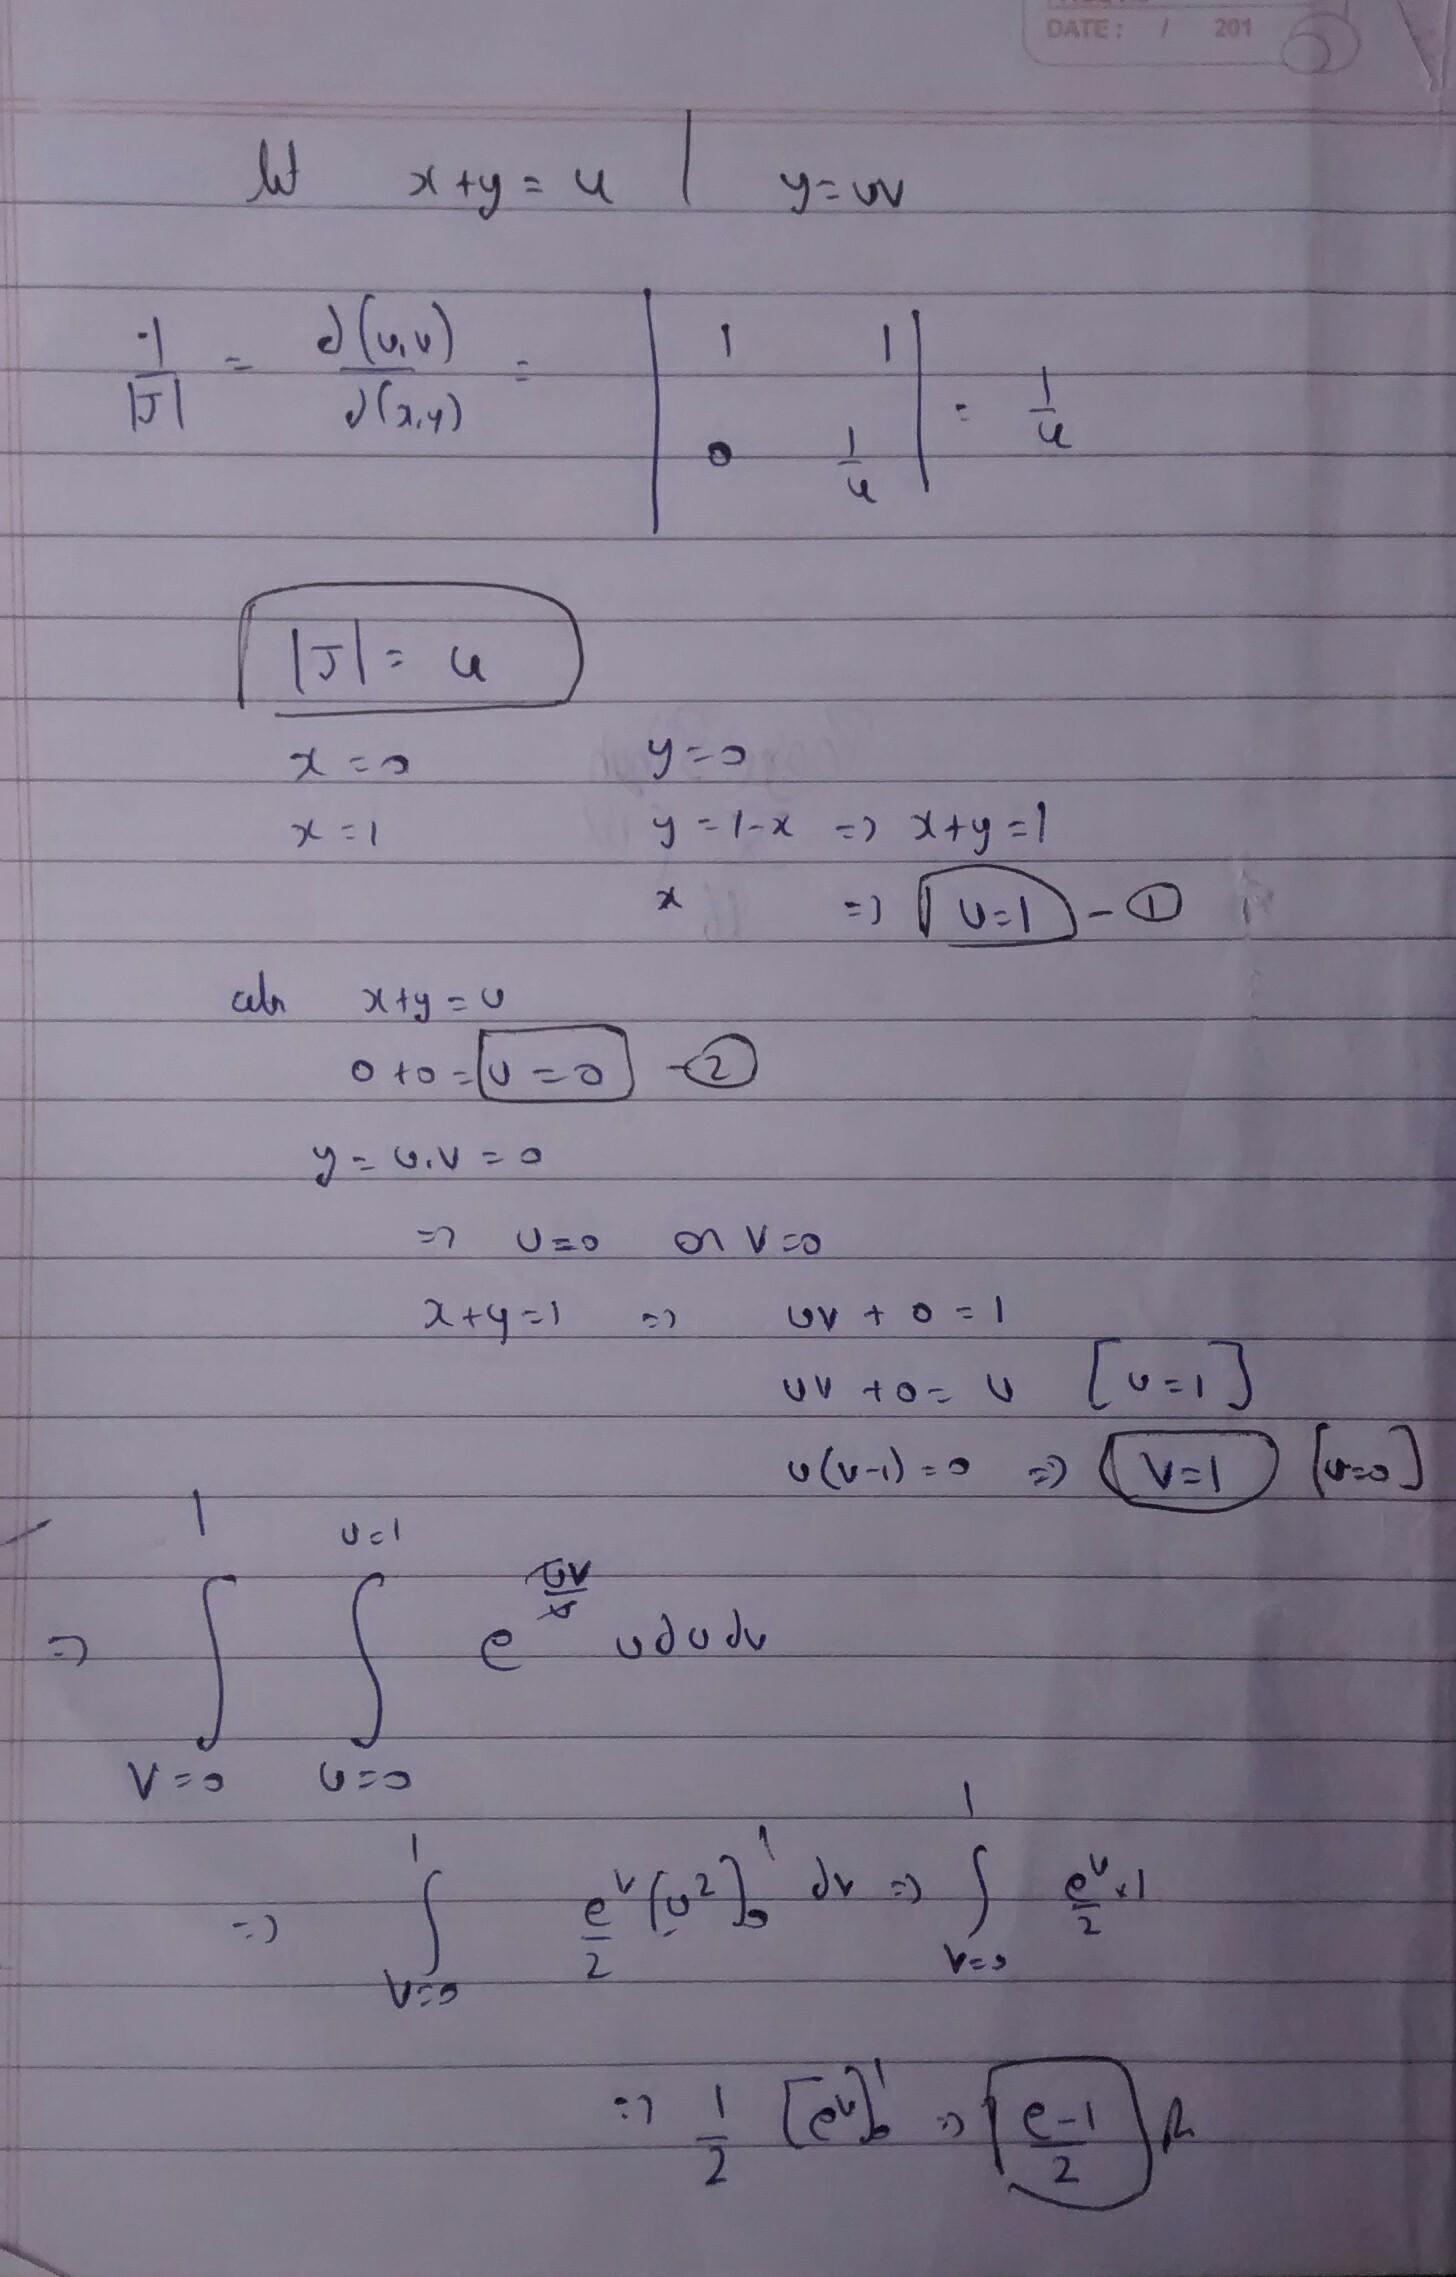 DATE: / 201
let x+y=u | y=uv
1/|J| = ∂(u,v)/∂(x,y) = | 1 1 ; 0 1/u | = 1/u
|J| = u
x=0 y=0
x=1 y=1-x => x+y=1
x => u=1 - ①
x+y=u
0+0=u=0 - ②
y=u.v=0
=> u=0 or v=0
x+y=1 => uv+0=1
uv+0=u [u=1]
u(v-1)=0 => v=1 [u=0]
=> ∫_{v=0}^{1} ∫_{u=0}^{u=1} e^{uv/u} u du dv
=> ∫_{v=0}^{1} e^v/2 [u²]_0^1 dv => ∫_{v=0}^{1} e^v/2 ×1
=> 1/2 [e^v]_0^1 => (e-1)/2